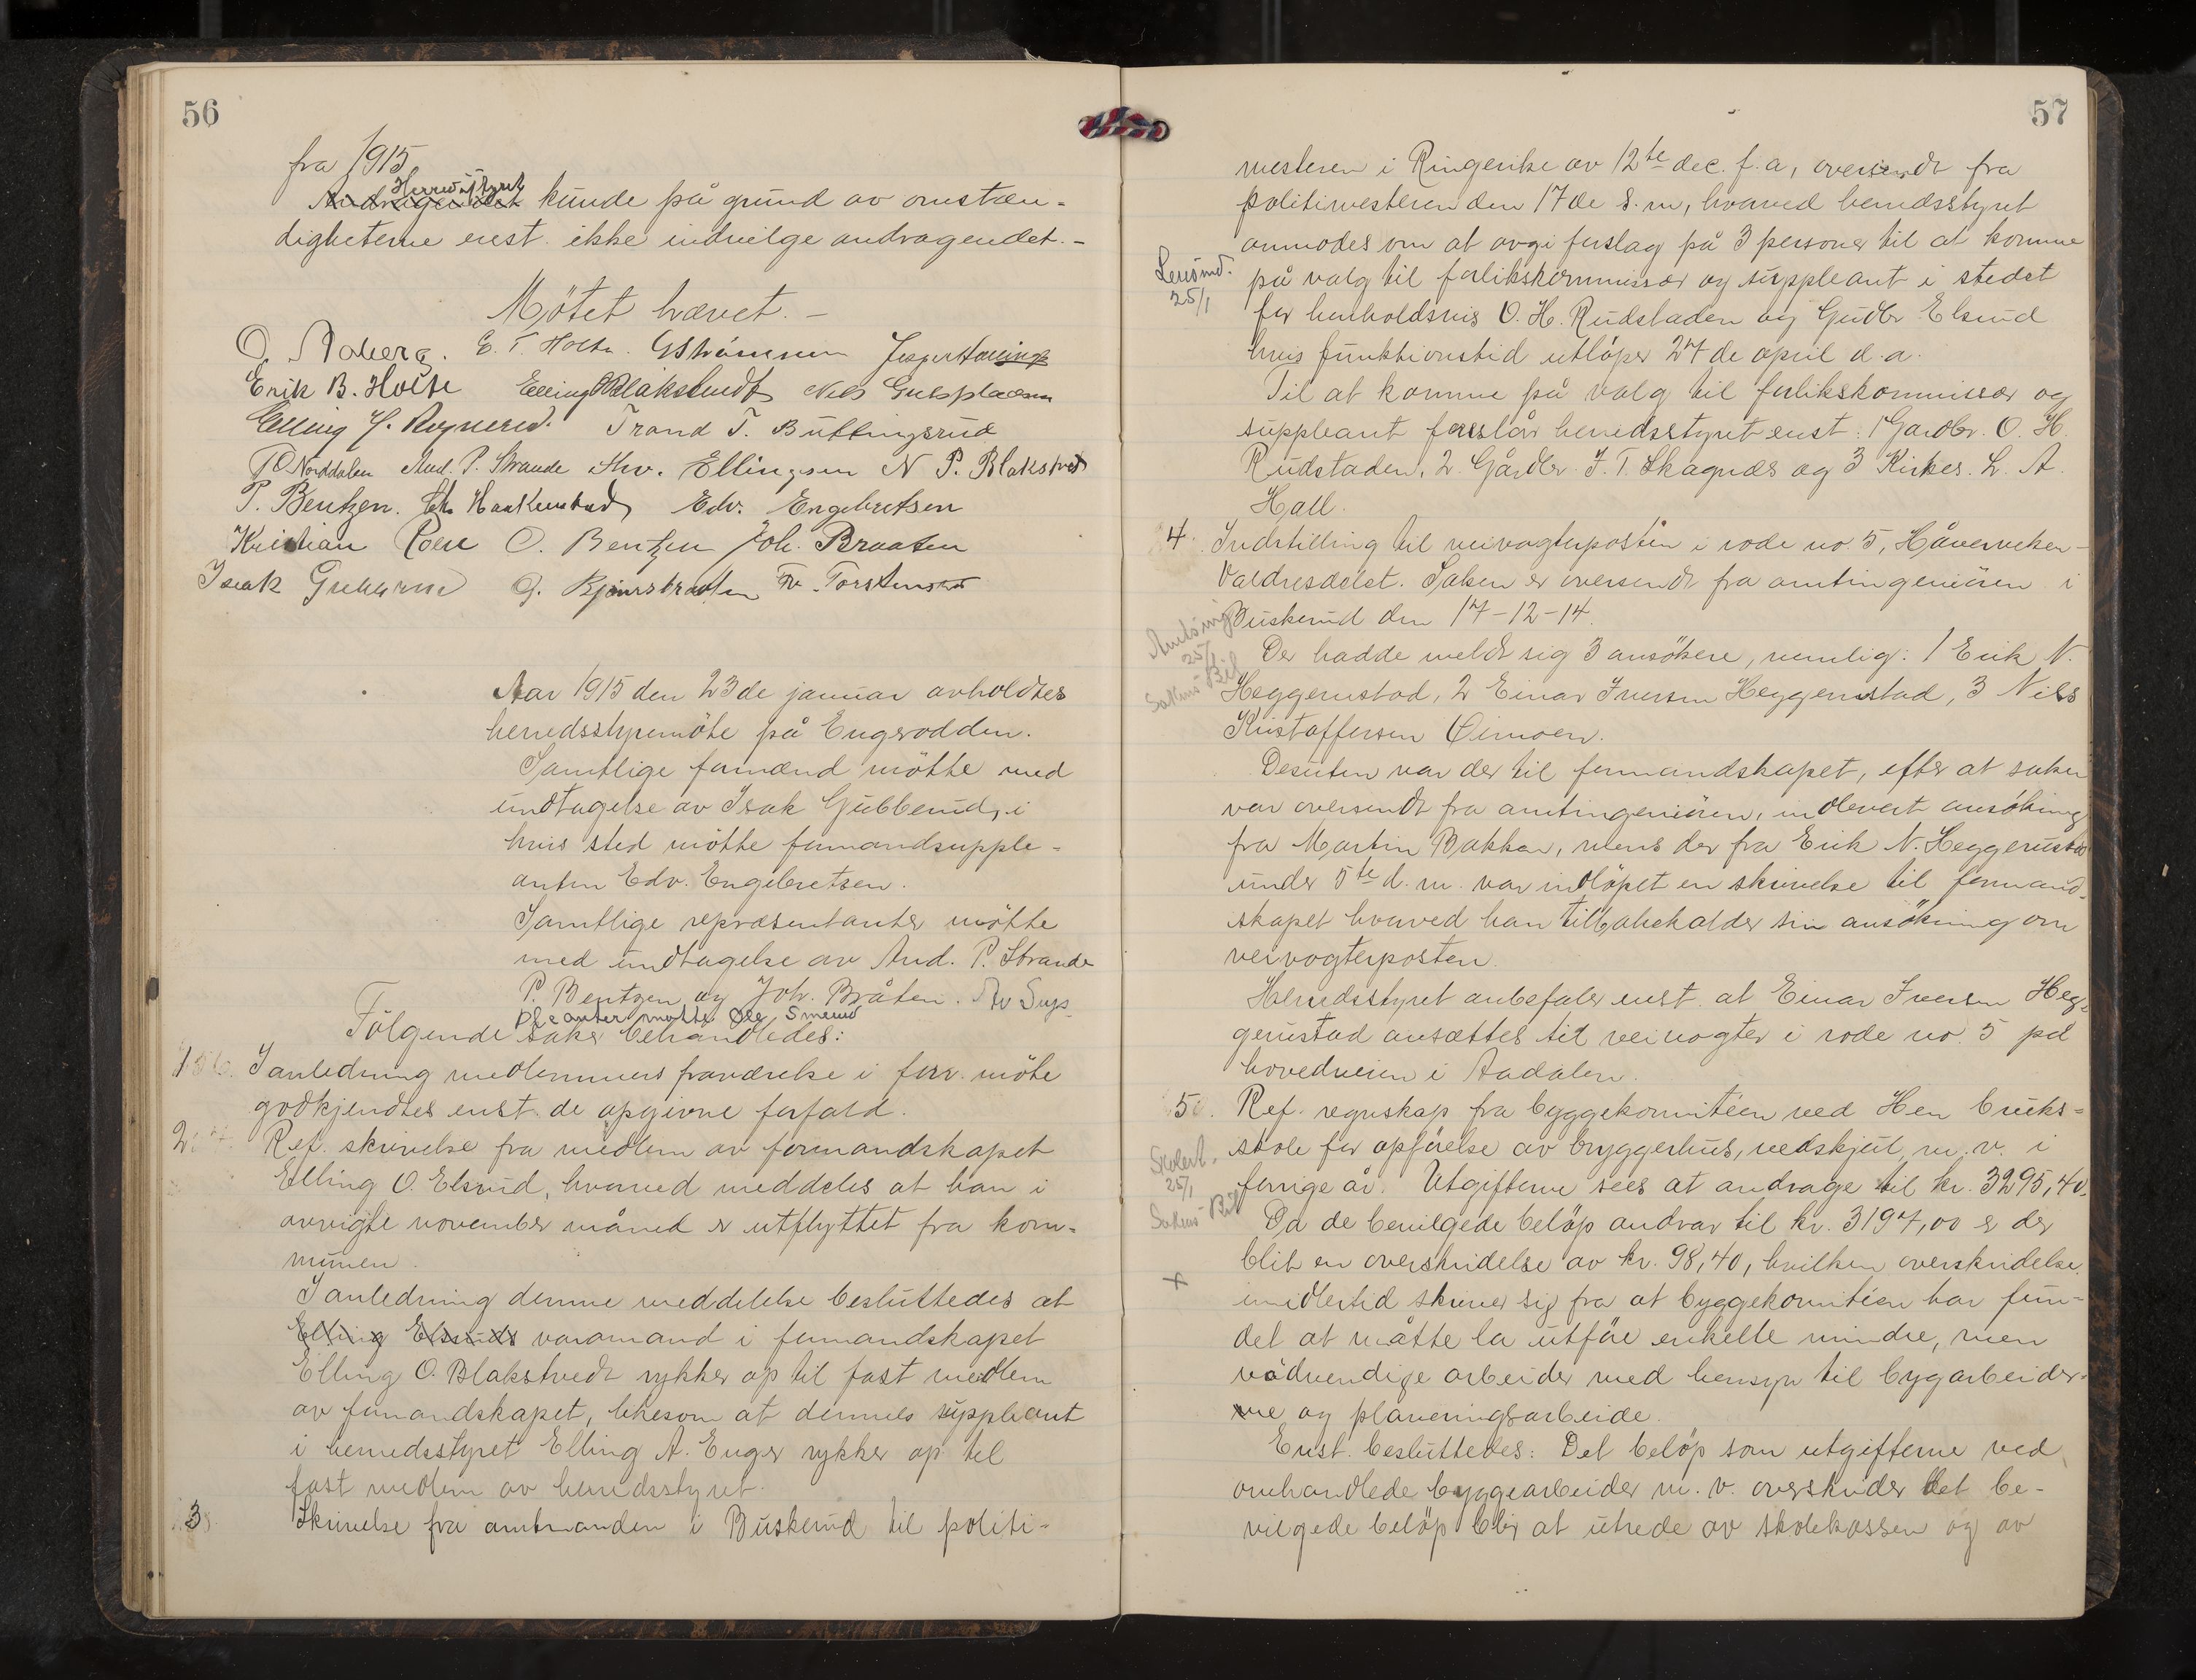 56
fra 1915.
Herredsstyret
Andragendet kunde på grund av omstæn-
digheterne enst. ikke indvilge andragendet. -
Møtet hævet. -
O. Aaberg. E. T. Holte. GStrømmen Jesper
Erik B. Holte Elling O Blakstvedt Nils Gulsplassen
Elling J. Trond T. Buttingsrud
Norddalen And. P. Strande Ellingsen N P. Blakstvedt
P. Bentzen. Edv. Engebretsen
Kristian Roen O. Bentzen Joh. Braaten
Isak G. Torstensrud
Aar 1915 den 23de januar avholdtes
herredsstyremöte på Engerodden.
Samtlige formænd mötte med
undtagelse av Isak Gubberud, i
hvis sted mötte formandsupple-
anten Edv. Engebretsen.
Samtlige repræsentanter mötte
med undtagelse av And. P. Strande
P. Bentzen og Joh. Bråten. Av Sup-
pleanter mötte Ole Smerud
Fölgende saker behandledes:
1. I anledning medlemmers fraværelse i forr. möte
godkjendtes enst. de opgivne forfald.
2. Ref. skrivelse fra medlem av formandskapet
Elling O. Elsrud, hvorved meddeles at han i
avvigte november måned er utflyttet fra kom-
munen.
I anledning denne meddelelse besluttedes at
Elling Elsruds varamand i formandskapet
Elling O. Blakstvedt rykker op til fast medlem
av formandskapet, likesom at dennes suppleant
i herredsstyret Elling A. Enger rykker op til
fast medlem av herredsstyret.
3 Skrivelse fra amtmanden i Buskerud til politi-
57
mesteren i Ringerike av 12te dec. f. a, oversendt fra
politimesteren den 17de s. m, hvorved herredsstyret
anmodes om at avgi forslag på 3 personer til at komme
Lensmd.
25/1
på valg til forlikskommissær og suppleant i stedet
for henholdsvis O. H. Rudstaden og Gudbr. Elsrud
hvis funktionstid utlöper 27de april d. a.
Til at komme på valg til forlikskommissær og
suppleant foreslår herredsstyret enst: 1 Gardbr. O. H.
Rudstaden, 2. Gårdbr. J. T. Skagnæs og 3 Kirkes. L. A.
Hall.
4. Indstilling til veivogterposten i rode no. 5, Håverveken-
Valdresdelet. Saken er oversendt fra amtingeniören i
Buskerud den 17-12-14.
Amtsing
25/1
Sakens Bil
Der hadde meldt sig 3 ansökere, nemlig: 1 Erik N.
Heggerustad, 2 Einar Iversen Heggerustad, 3 Nils
Kristoffersen Öimoen.
Desuten var der til formandskapet, efter at saken
var oversendt fra amtingeniören, indlevert ansökning
fra Martin Bakken, mens der fra Erik N. Heggerustad
under 5te d. m. var indlöpet en skrivelse til formand-
skapet hvorved han tilbakekalder sin ansökning om
veivogterposten.
Herredsstyret anbefaler enst. at Einar Iversen Heg-
gerustad ansættes til veivogter i rode no. 5 på
hovedveien i Aadalen.
5. Ref. regnskap fra byggekomitéen ved Hen bruks-
skole for opförelse av bryggerhus, vedskjul, m. v. i
Skolest.
25/1
Sakens Bil
forrige år. Utgifterne sees at andrage til kr. 3295,40.
Da de bevilgede belöp andrar til kr. 3197,00 er der
blit en overskridelse av kr. 98,40, hvilken overskridelse
x
imidlertid skriver sig fra at byggekomitéen har fun-
det at måtte la utföre enkelte mindre, men
nödvendige arbeider med hensyn til bygarbeider-
ne og planeringsarbeide.
Enst. besluttedes: Det belöp som utgifterne ved
omhandlede byggearbeider m. v. overskrider det be-
vilgede belöp blir at utrede av skolekassen og av